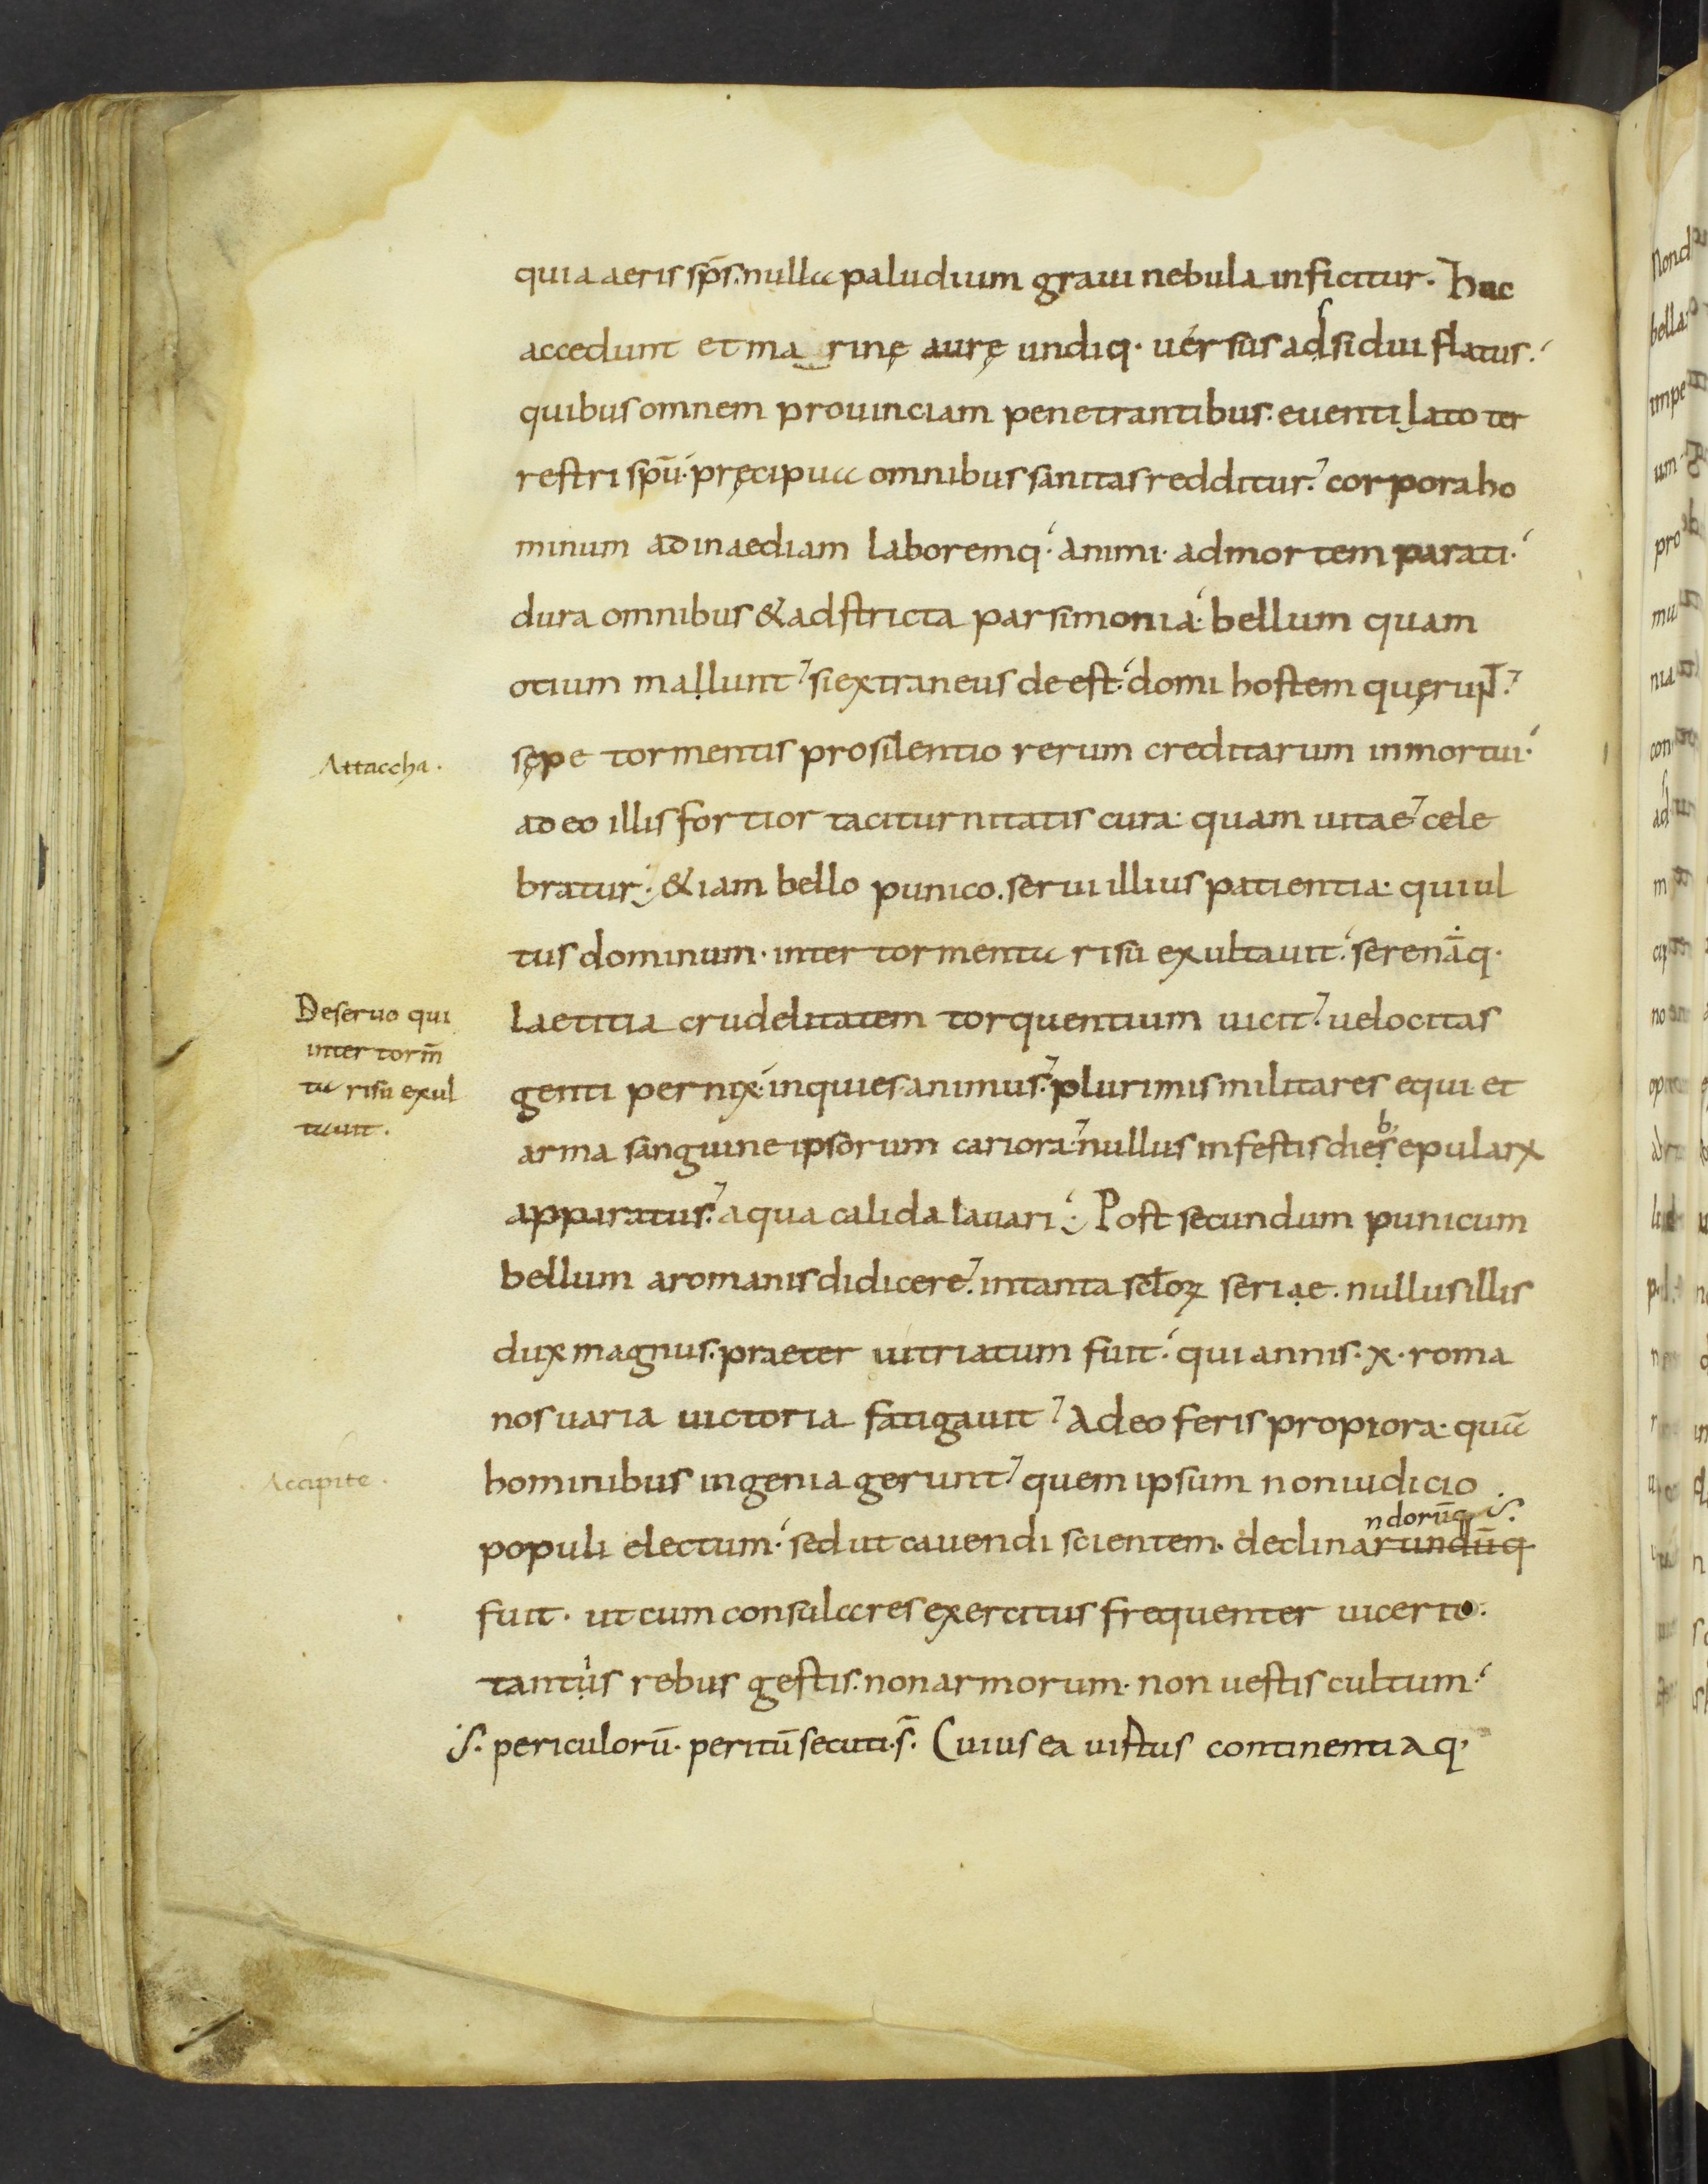 quia aeris sp̄s. nulla paludium graui nebula inficitur. Huc
accedunt et ma rinę aurę undiq· uersus adsidui flatus.
quibus omnem prouinciam penetrantibus. euentilato ter
restri spū· pręcipua omnibus sanitas redditur. corpora ho
minum ad inaediam laboremq· animi· ad mortem parati·
dura omnibus & adstricta parsimonia· bellum quam
otium mallunt si extraneus deest· domi hostem quęrunt.
sępe tormentis pro silentio rerum creditarum inmortui·
Attaccha.
adeo illis fortior taciturnitatis cura· quam uitae cele
bratur; &iam bello punico. serui illius patientia· qui ul
tus dominum· inter tormenta risu exultauit· serenāq·
Deseruo qui
inter torm̄
ta risu exul
tauit.
laetitia crudelitatem torquentium uicit. uelocitas
genti pernix· inquies animus. plurimis militares equi· et
arma sanguine ipsorum cariora· nullus in festis dieṣ epularꝝ
b;
apparatus. aqua calida lauari; Post secundum punicum
bellum a romanis didicere. in tanta sc̄loꝝ seriae. nullus illis
dux magnus. praeter uitriatum fuit· qui annis· x· roma
nos uaria uictoria fatigauit Adeo feris propiora· quā
hominibus ingenia gerunt quem ipsum non iudicio
Accipite.
ndorūq; s.
populi electum· sed ut cauendi scientem· declinarundūq
fuit· ut cum consulares exercitus frequenter uicerit·
tantus rebus gestis. non armorum· non uestis cultum·
s. periculorū· peritū secuti· s̄. Cuius ea uirtus continentiaq·